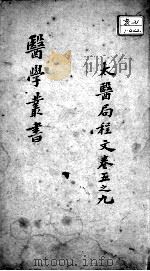 太醫局程文卷五之九
醫學叢書